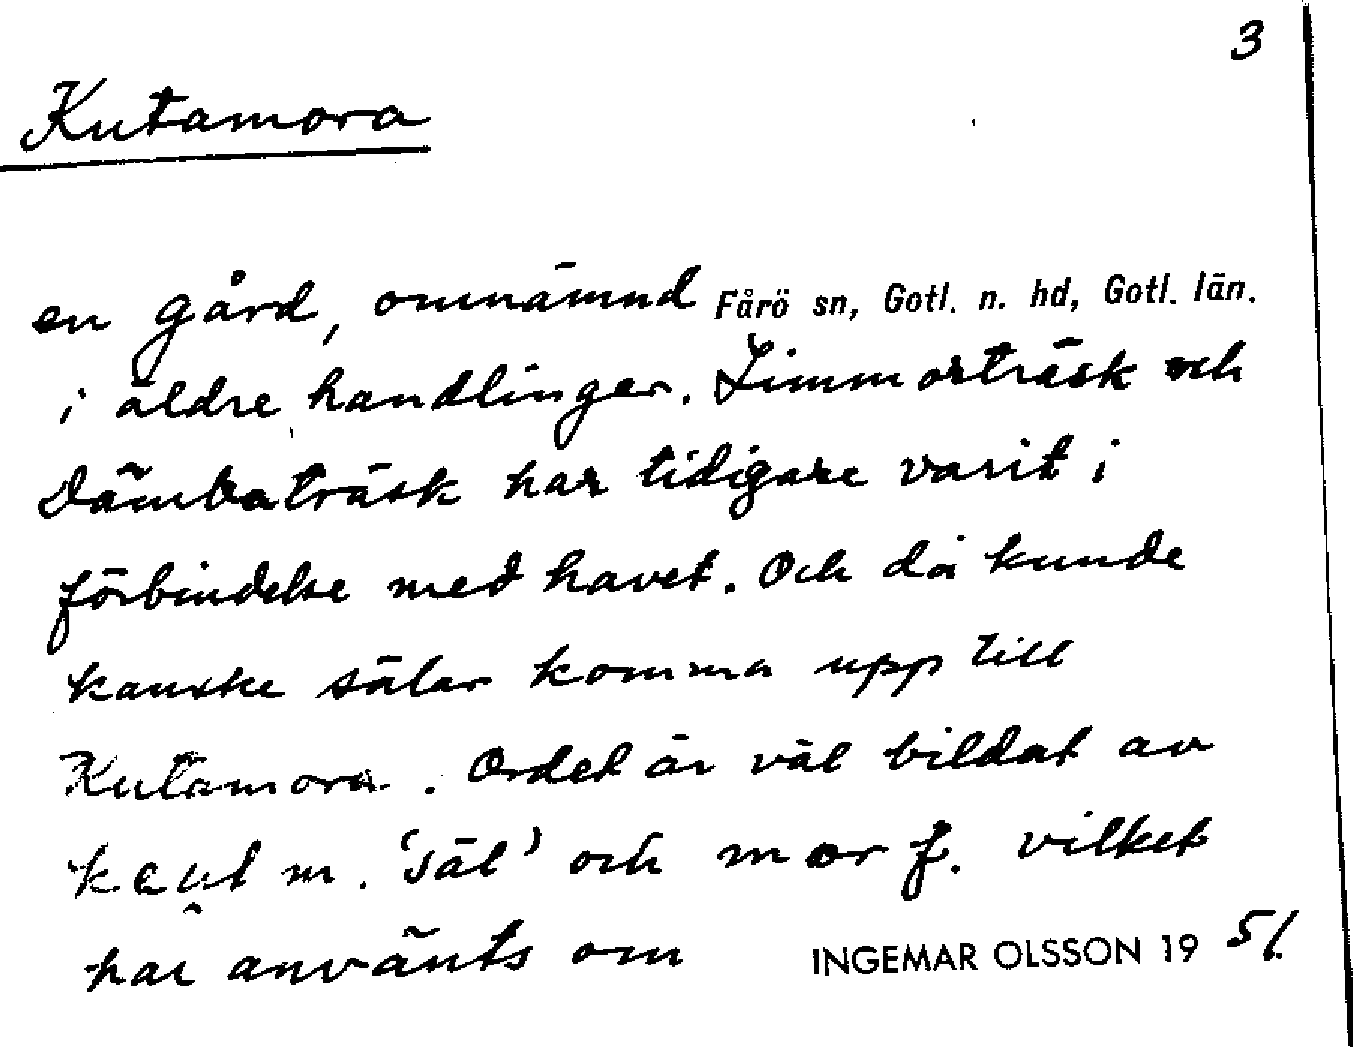 3
Kutamora
en gård, omnämnd Fårö sn, Gotl. n. hd, Gotl. län.
i äldre handlingar. Limmorträsk och
Dämbaträsk har tidigare varit i
förbindelse med havet. Och då kunde
kanske sälar komma upp till
Kutamora. Ordet är väl bildat av
kaut m. 'säl' och mor f. vilket
har använts om INGEMAR OLSSON 1951.